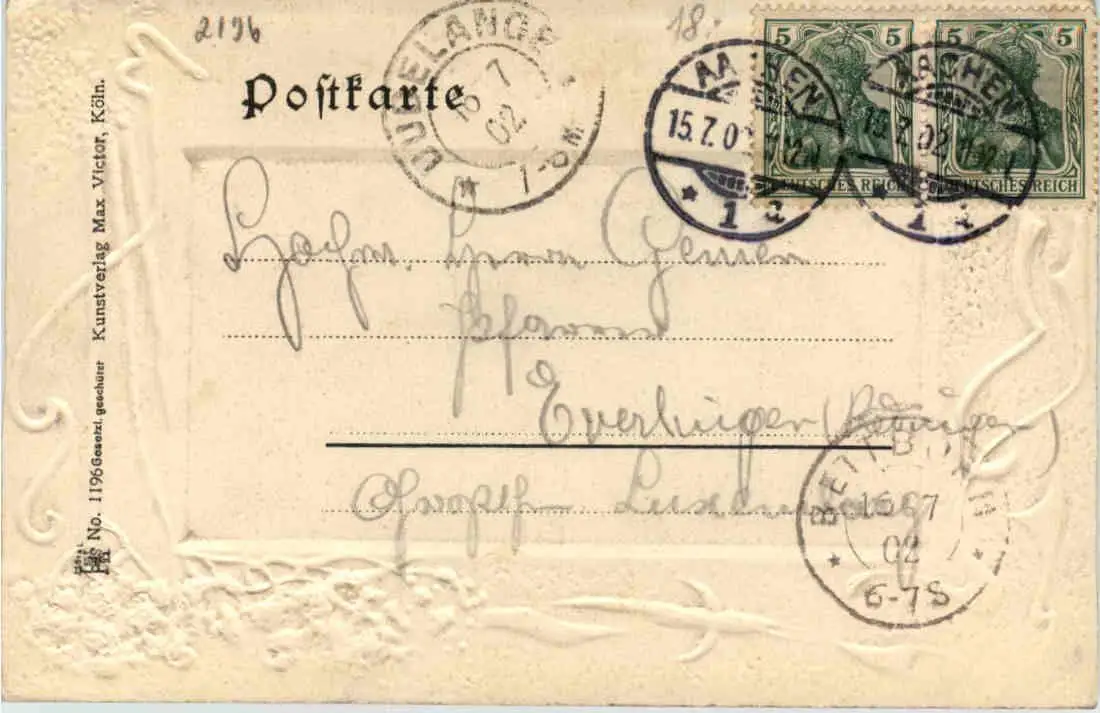 2196
18
Postkarte
DUDELANGE
16 7
02
7-8 M
5 5
5 5
DEUTSCHES REICH
DEUTSCHES REICH
AACHEN
15.7.02
1 a
AACHEN
15.7.02
1 a
Hochw. Herrn
Pfarrer
Everlingen
Luxemburg
BETTBORN
16 7
02
6-7 S
No. 1196 Gesetzl. geschützt Kunstverlag Max Victor, Köln.